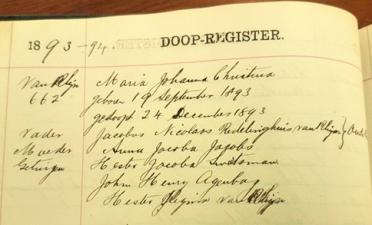 1893-94. DOOP-REGISTER.
van Rhijn Maria Johanna Christina
662 gebore 19 September 1893
gedoopt 24 December 1893
Vader Jacobus Nicolaas Redelinghuis van Rhijn
Moeder Anna Jacoba Jacobs
Getuigen Hester Jacoba
John Henry Agenbag
Hester Regina van Rhijn